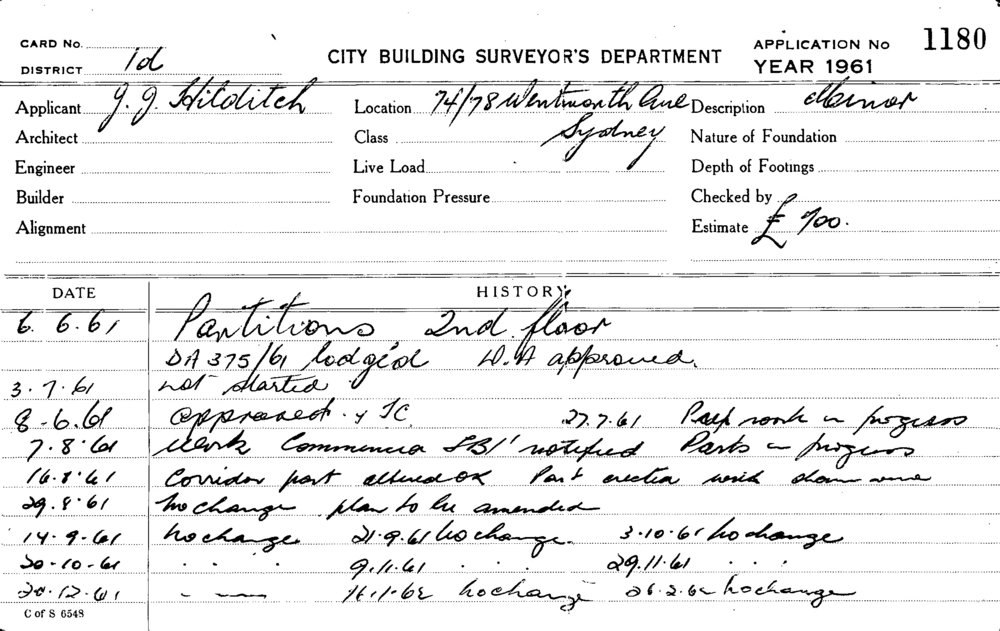 CARD No.
DISTRICT 1d
CITY BUILDING SURVEYOR'S DEPARTMENT
APPLICATION No 1180
YEAR 1961
Applicant J. J. Hilditch Location 74/78 Wentworth Ave Description Minor
Architect Class Sydney Nature of Foundation
Engineer Live Load Depth of Footings
Builder Foundation Pressure Checked by
Alignment Estimate £ 700.
DATE HISTORY
6. 6. 61 Partitions 2nd floor
DA 375/61 lodg'd D.A approved.
3. 7. 61 not started
8-6.61 approved TC 27.7.61 work in progress
7.8.61 Work notified Parts in progress
16.8.61 Corridor part altered OK Part work
29.8.61 No change plan to be amended
14.9.61 No change 21.9.61 No change. 3.10.61 No change
20-10-61 . . . 9.11.61 . . . 29.11.61 . . .
20.12.61 - — 16.1.62 No change 26.2.62 No change
C of S 6548